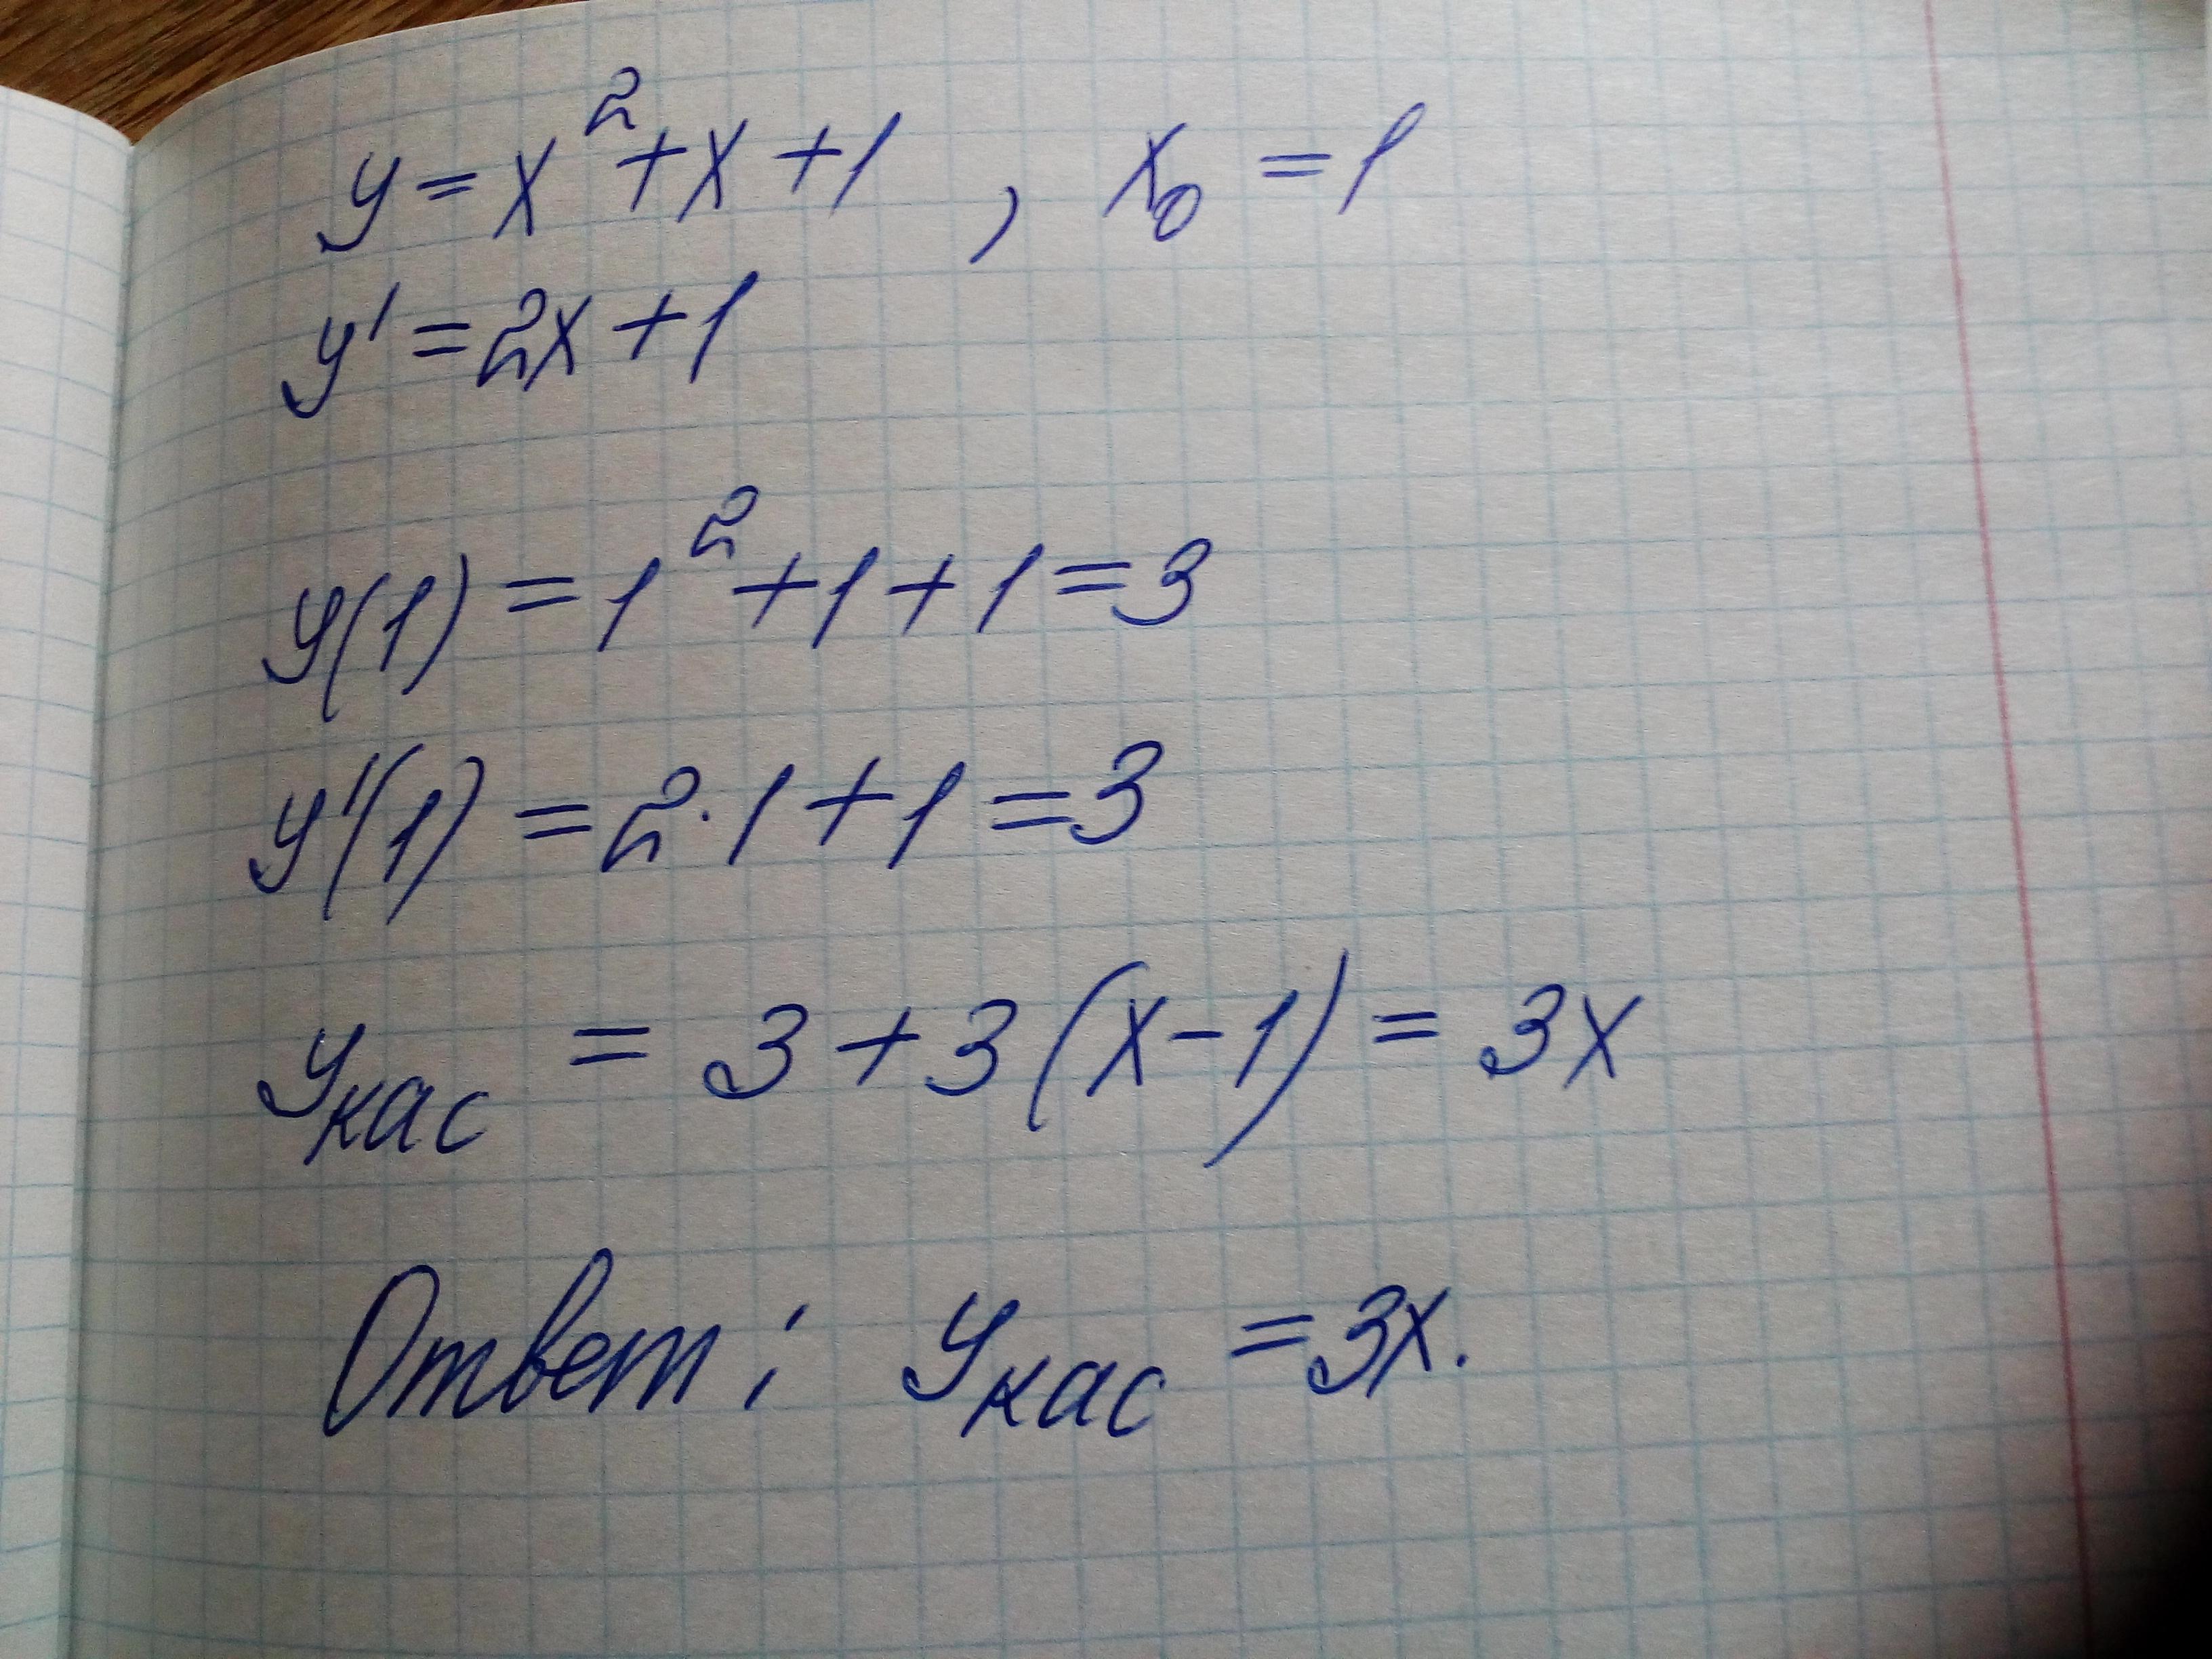 y = x² + x + 1 , x₀ = 1
y' = 2x + 1
y(1) = 1² + 1 + 1 = 3
y'(1) = 2·1 + 1 = 3
yкас = 3 + 3(x - 1) = 3x
Ответ: yкас = 3x.